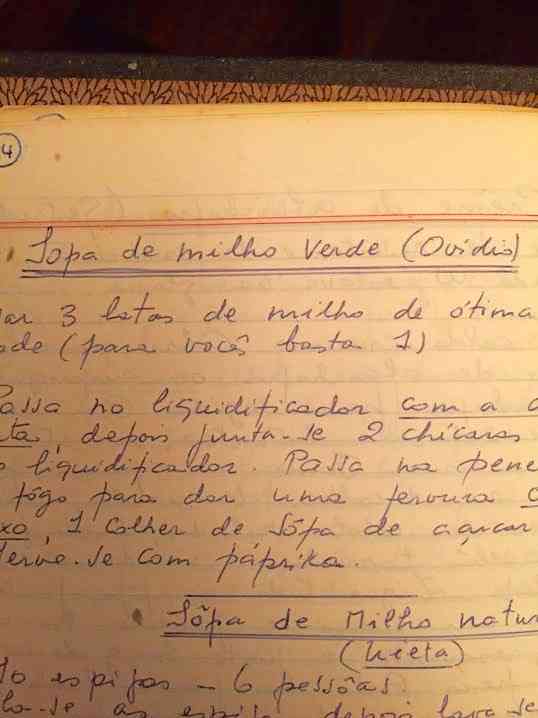 4
Sopa de milho verde (Ovidio)
ar 3 latas de milho de ótima
ade (para vocês basta 1)
Passa no liquidificador com a
ta, depois junta-se 2 chicaras
o liquidificador. Passa na pene
fôgo para dar uma fervura
xo, 1 colher de sôpa de açucar
erve-se com páprika.
Sôpa de Milho natu
(Nieta)
espigas - 6 pessôas.
la-se as espigas depois lava se